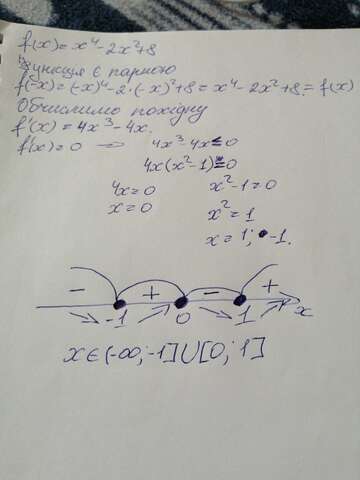 f(x)=x⁴-2x²+8
Функція є парною
f(-x)=(-x)⁴-2·(-x)²+8=x⁴-2x²+8=f(x)
Обчислимо похідну
f'(x)=4x³-4x.
f'(x)=0 => 4x³-4x=0
4x(x²-1)=0
4x=0 x²-1=0
x=0 x²=1
x=1; -1.
- + - +
-1 0 1 x
x∈(-∞;-1]∪[0;1]